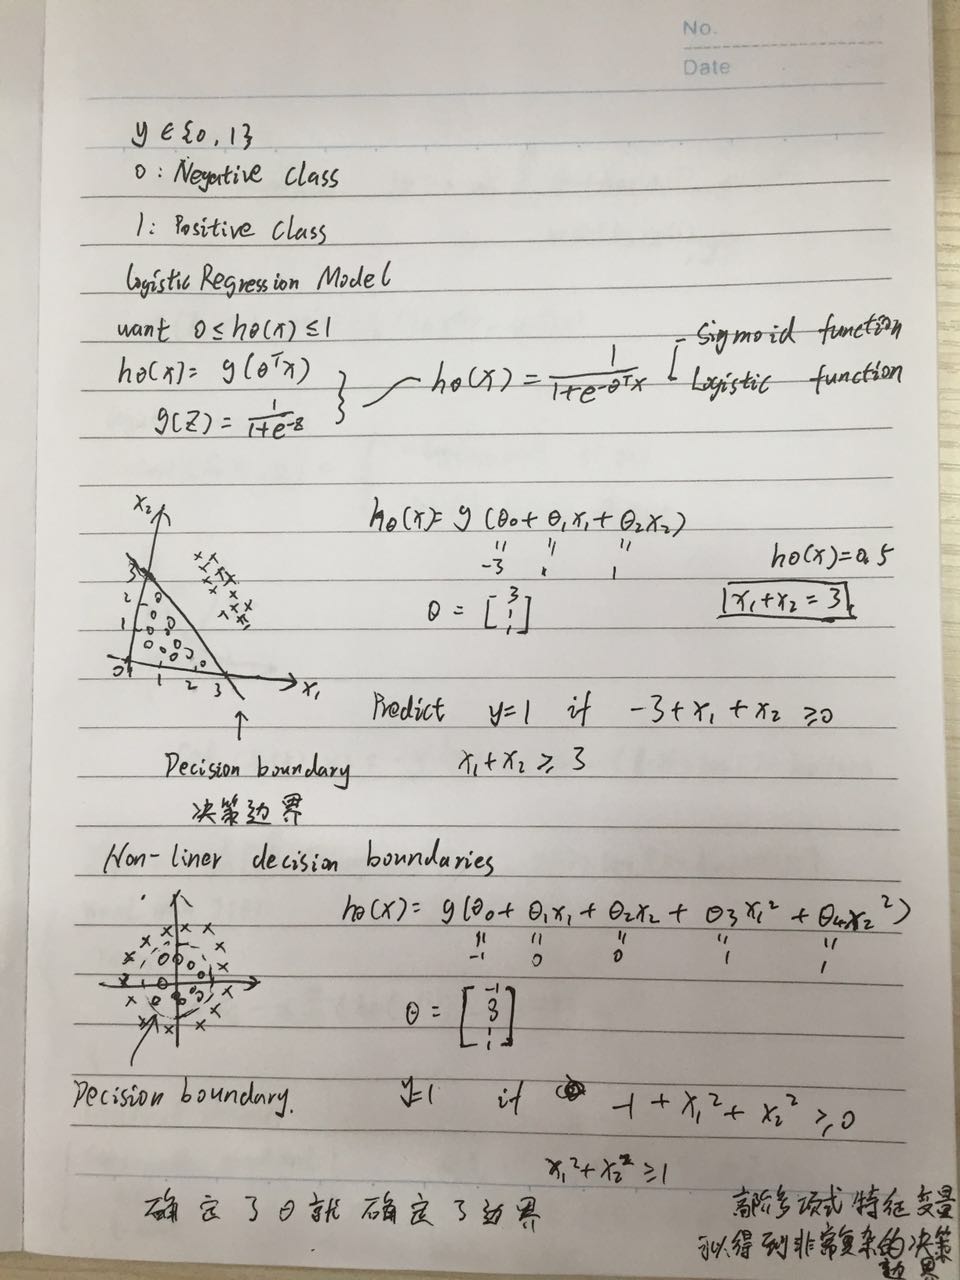 No.
Date
y ∈ {0, 1}
0 : Negative Class
1 : Positive Class
Logistic Regression Model
want 0 ≤ hθ(x) ≤ 1
hθ(x) = g(θᵀx)
g(z) = 1/(1+e^-z)
hθ(x) = 1/(1+e^-θᵀx)
Sigmoid function
Logistic function
x₂
3
2
1
0 1 2 3 x₁
hθ(x) = g(θ₀ + θ₁x₁ + θ₂x₂)
-3 1 1
hθ(x) = 0.5
θ = [-3 1 1]
x₁ + x₂ = 3
Predict y=1 if -3 + x₁ + x₂ ≥ 0
x₁ + x₂ ≥ 3
Decision boundary
决策边界
Non-liner decision boundaries
hθ(x) = g(θ₀ + θ₁x₁ + θ₂x₂ + θ₃x₁² + θ₄x₂²)
-1 0 0 1 1
θ =
Decision boundary.
y=1 if -1 + x₁² + x₂² ≥ 0
x₁² + x₂² ≥ 1
确定了θ就确定了边界
高阶多项式特征变量
可以得到非常复杂的决策
边界